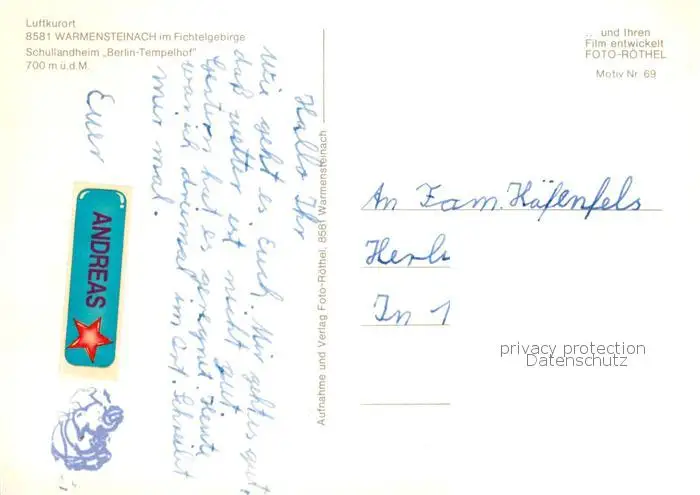 Luftkurort
8581 WARMENSTEINACH im Fichtelgebirge
Schullandheim „Berlin-Tempelhof"
700 m ü.d.M.
Hallo Ihr
Wie geht es Euch. Mir geht es gut.
daß wetter ist nicht gut.
Gestern hat es geregnet. Heute
war ich dreimal im Ort. Schreibt
mir mal.
Euer
ANDREAS
Aufnahme und Verlag Foto-Röthel, 8581 Warmensteinach
.. und Ihren
Film entwickelt
FOTO-RÖTHEL
Motiv Nr. 69
An Fam. Häfenfels
Herb
In 1
privacy protection
Datenschutz